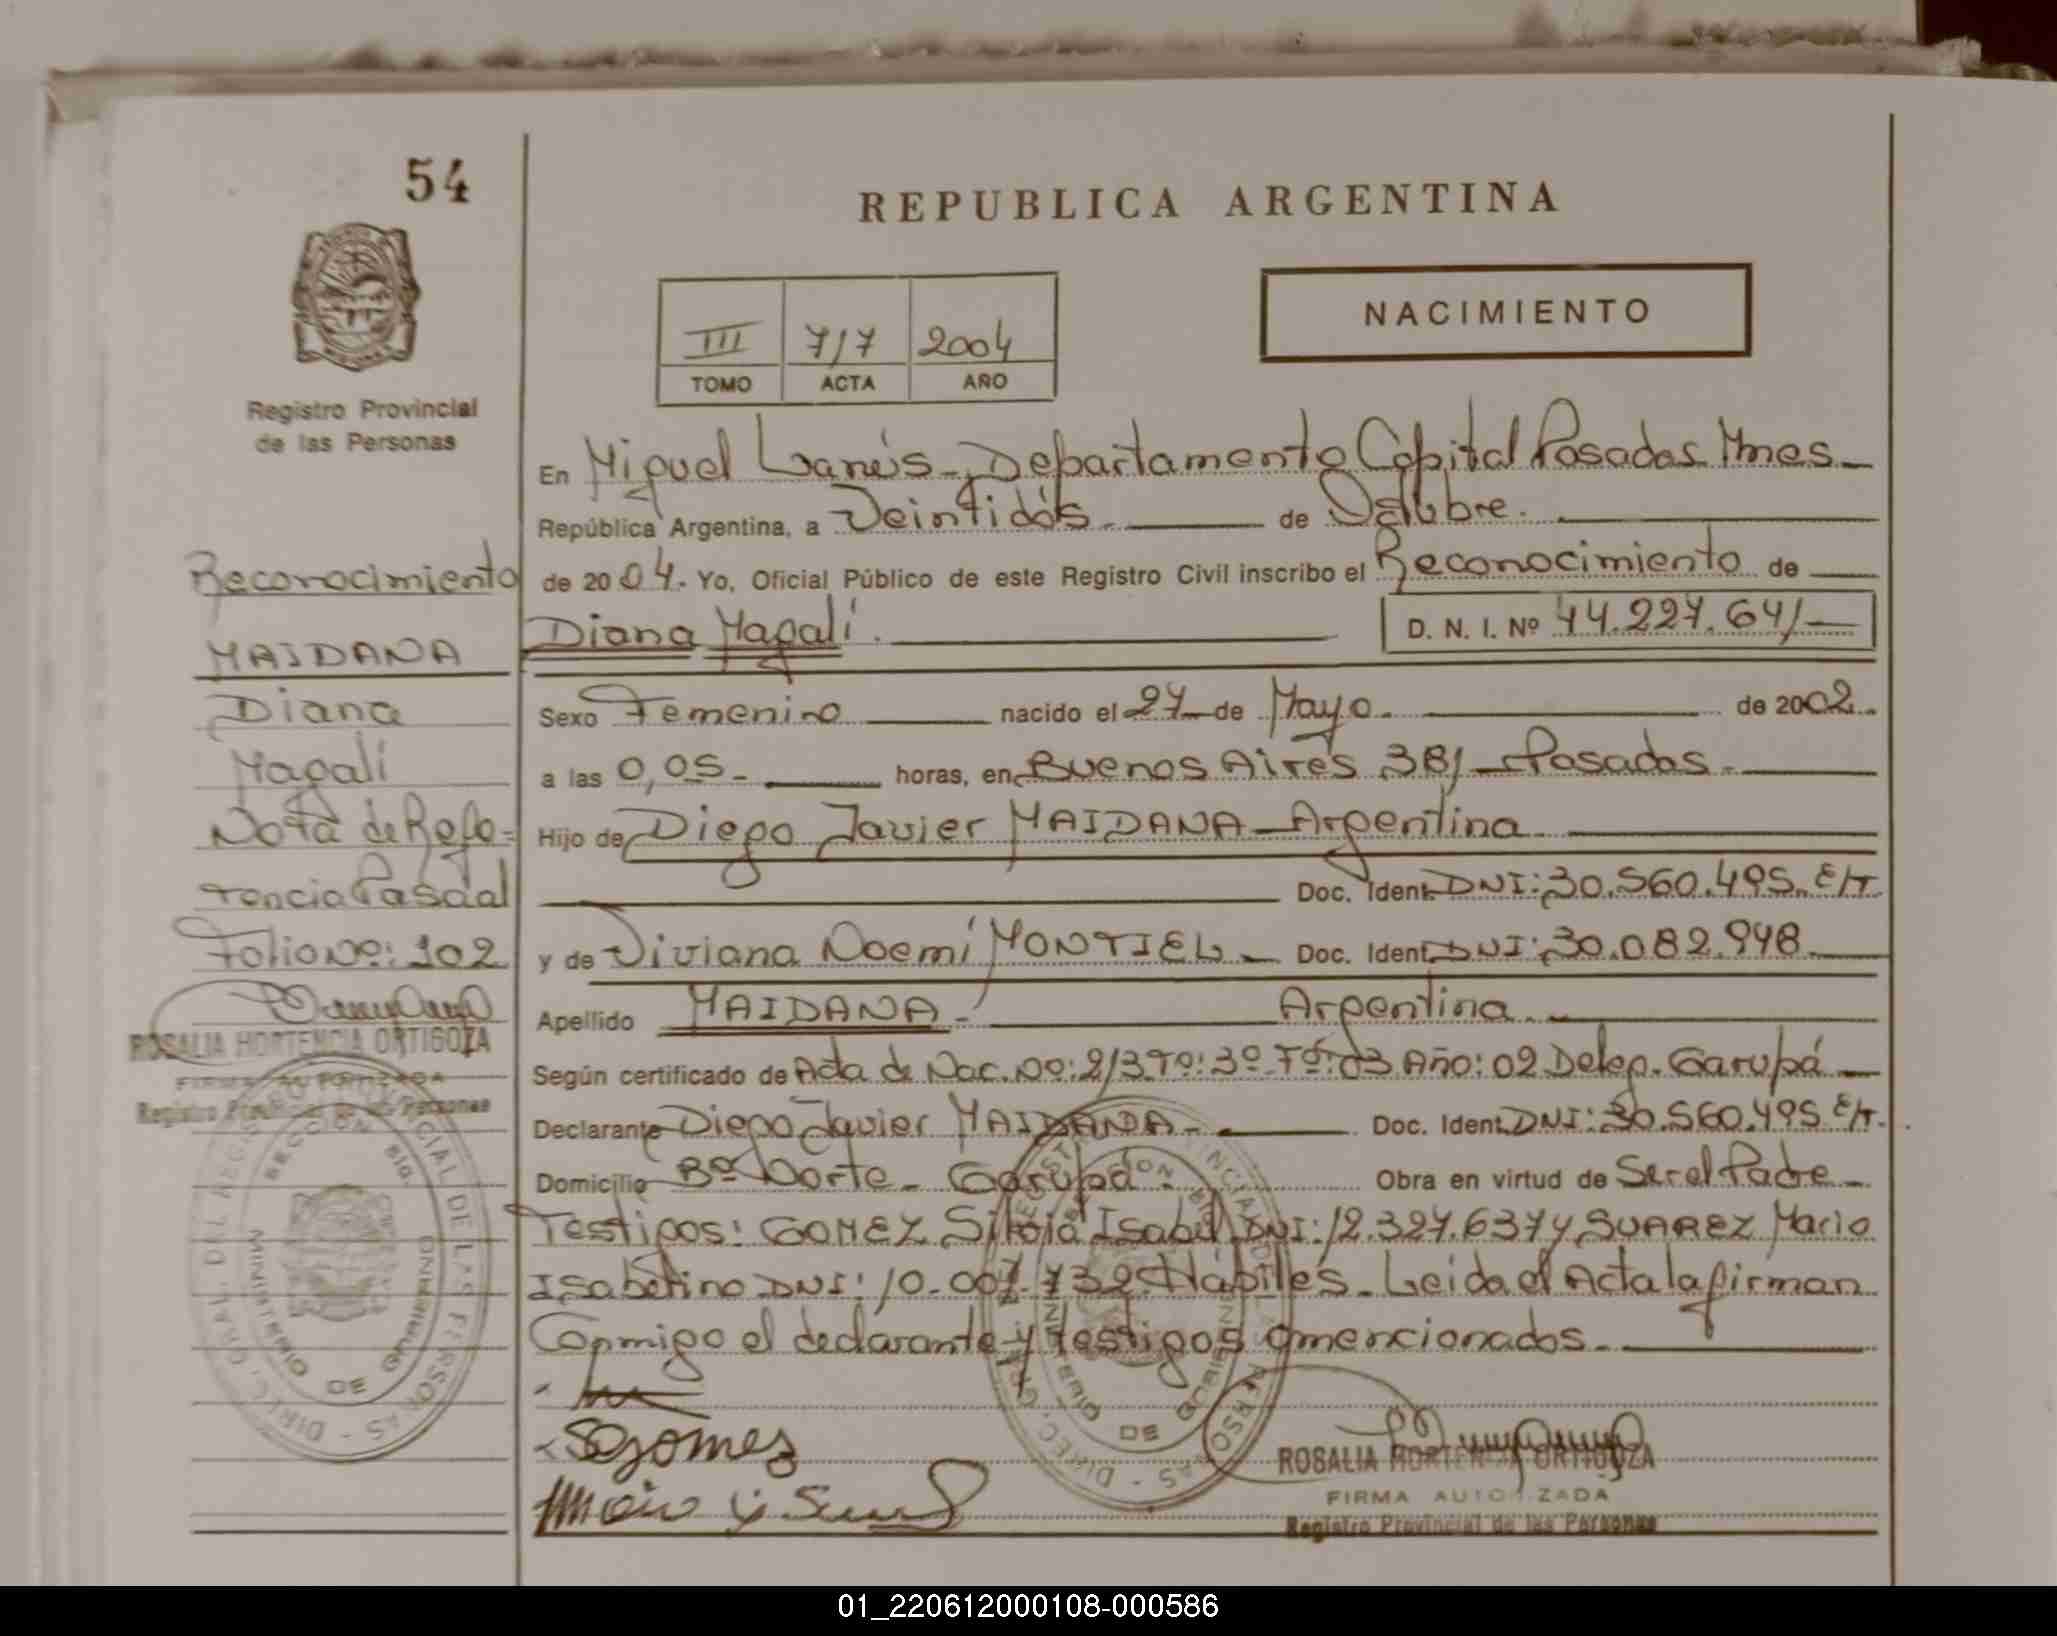 54
REPUBLICA ARGENTINA
NACIMIENTO
III 7/7 2004
TOMO ACTA AÑO
Registro Provincial
de las Personas
En Miguel Lanús - Departamento Capital Posadas Mnes -
República Argentina, a Veintidós. de Octubre.
de 2004. Yo, Oficial Público de este Registro Civil inscribo el Reconocimiento de
Diana Magalí. D. N. I. Nº 44.227.641
Sexo Femenino nacido el 27 de Mayo. de 2002.
a las 0,05 - horas, en Buenos Aires 381 - Posadas -
Hijo de Diego Javier MAIDANA - Argentina
Doc. Ident. DNI: 30.560.495. E/T.
y de Viviana Noemí MONTIEL - Doc. Ident. DNI: 30.082.948
Apellido MAIDANA - Argentina.
Según certificado de Acta de Nac. Nº: 213 Tº: 3º Fº: 03 Año: 02 Deleg. Garupá
Declarante Diego Javier MAIDANA - Doc. Ident. DNI: 30.560.495 E/T.
Domicilio Bº Norte - Garupá. Obra en virtud de Ser el Padre -
Testigos: GOMEZ Silvia Isabel DNI: 12.327.637 y SUAREZ Mario
Isabelino DNI: 10.007.732 Hábiles. Leida el Acta la firman
Conmigo el declarante y testigos mencionados.
SGomez
ROSALIA HORTENCIA ORTIGOZA
FIRMA AUTORIZADA
Registro Provincial de las Personas
Reconocimiento
MAIDANA
Diana
Magalí
Nota de Refe=
rencia Pasdal
Folio Nº: 102
ROSALIA HORTENCIA ORTIGOZA
FIRMA AUTORIZADA
Registro Provincial de las Personas
DIREC. GRAL. DEL REGISTRO PROVINCIAL DE LAS PERSONAS
MINISTERIO DE GOBIERNO
DIREC. GRAL. DEL REGISTRO PROVINCIAL DE LAS PERSONAS
MINISTERIO DE GOBIERNO
01_220612000108-000586